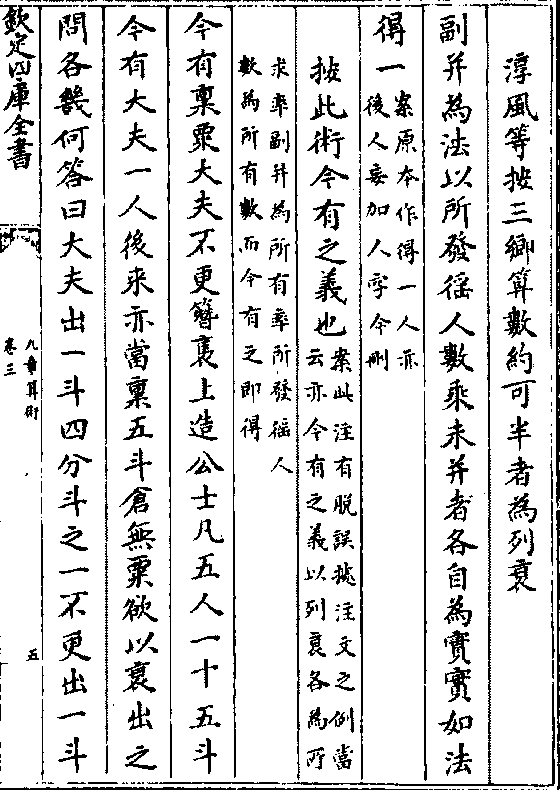 淳風等按三鄉算數約可半者為列衰
副并為法以所發徭人數乘未并者各自為實實如法
得一案原本作得一人亦
後人妄加人字今刪
按此術今有之義也案此注有脫誤據注文之例當
云亦今有之義以列衰各為所
求率副并為所有率所發徭人
數為所有數而今有之即得
今有稟粟大夫不更簪褭上造公士凡五人一十五斗
今有大夫一人後来亦當稟五斗倉無粟欲以衰出之
問各幾何答曰大夫出一斗四分斗之一不更出一斗
欽定四庫全書
九章算術
卷三
五